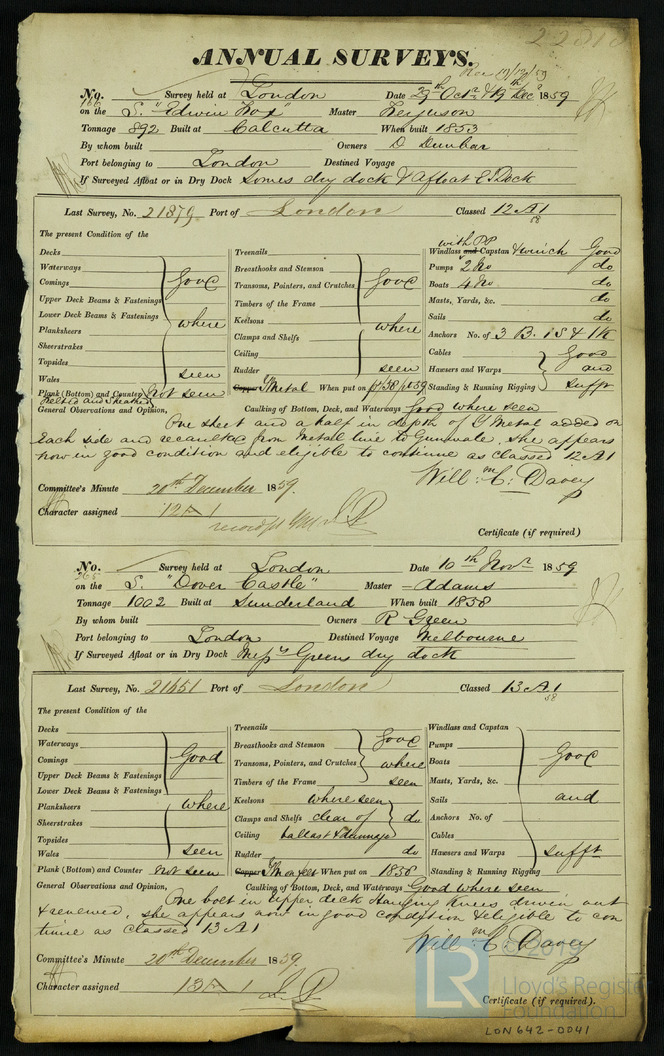 22818
ANNUAL SURVEYS.
Rec 19/12/59
No. 166 Survey held at London Date 29th Octr & 19 Decr 1859
on the S. "Edwin Fox" Master Ferguson
Tonnage 892 Built at Calcutta When built 1853
By whom built Owners D Dunbar
Port belonging to London Destined Voyage
If Surveyed Afloat or in Dry Dock Somes dry dock & afloat E I Dock
Last Survey, No. 21879 Port of London Classed 12 A 1
58
The present Condition of the
Decks
Waterways
Comings
Upper Deck Beams & Fastenings
Lower Deck Beams & Fastenings
Planksheers
Sheerstrakes
Topsides
Wales
good where seen
Plank (Bottom) and Counter Not seen
Felted and Sheathed
Treenails
Breasthooks and Stemson
Transoms, Pointers, and Crutches
Timbers of the Frame
Keelsons
Clamps and Shelfs
Ceiling
Rudder
good where seen
Copper Y Metal When put on
with PP
Windlass and Capstan & winch Good
Pumps 2 No do
Boats 4 No do
Masts, Yards, &c. do
Sails do
Anchors No. of 3 B. 1 S & 1 K
Cables
Hawsers and Warps
Standing & Running Rigging
Good and sufft
General Observations and Opinion, Caulking of Bottom, Deck, and Waterways Good where seen
One sheet and a half in depth of Y Metal added on
each side and recaulked from Metal line to Gunwale, she appears
now in good condition and eligible to continue as classed 12 A 1
Will: m C: Davey
Committee's Minute 20th December 1859.
Character assigned 12 A 1
Certificate (if required)
No. 265 Survey held at London Date 10th Novr 1859
on the S. "Dover Castle" Master Adams
Tonnage 1002 Built at Sunderland When built 1858
By whom built Owners R Green
Port belonging to London Destined Voyage Melbourne
If Surveyed Afloat or in Dry Dock Messrs Greens dry dock
Last Survey, No. 21651 Port of London Classed 13 A 1
58
The present Condition of the
Decks
Waterways
Comings
Upper Deck Beams & Fastenings
Lower Deck Beams & Fastenings
Planksheers
Sheerstrakes
Topsides
Wales
Good where seen
Plank (Bottom) and Counter not seen
Treenails
Breasthooks and Stemson
Transoms, Pointers, and Crutches
Timbers of the Frame
good where seen
Keelsons where seen
Clamps and Shelfs clear of do
Ceiling ballast & dunnage
Rudder do
Copper When put on 1858
Windlass and Capstan
Pumps
Boats
Masts, Yards, &c.
Sails
Anchors No. of
Cables
Hawsers and Warps
Standing & Running Rigging
Good and sufft
General Observations and Opinion, Caulking of Bottom, Deck, and Waterways Good where seen
One bolt in upper deck Hanging Knees driven out
& renewed, she appears now in good condition & eligible to con
tinue as classed 13 A 1
Will m C Davey
Committee's Minute 20th December 1859
Character assigned 13 A 1
Certificate (if required).
© 2019
LR
Lloyd's Register
Foundation
LON642-0041